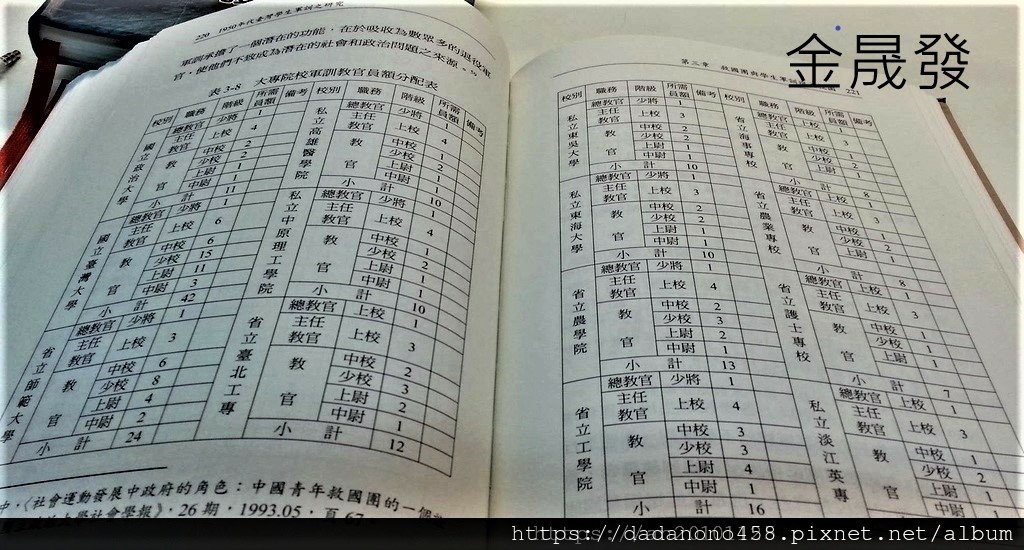 220 1950年代臺灣學生軍訓之研究
軍訓承擔了一個潛在的功能，在於吸收為數眾多的退役軍
官，使他們不致成為潛在的社會和政治問題之來源。
表 3-8 大專院校軍訓教官員額分配表
校別 職務 階級 所需員額 備考 校別 職務 階級 所需員額 備考
國立政治大學 總教官 少將 1
主任教官 上校 4
教官 中校 2
少校 2
上尉 1
中尉 1
小計 11
國立臺灣大學 總教官 少將 1
主任教官 上校 6
教官 中校 6
少校 15
上尉 11
中尉 3
小計 42
省立師範大學 總教官 少將 1
主任教官 上校 3
教官 中校 6
少校 8
上尉 4
中尉 2
小計 24
私立高雄醫學院 總教官 少將 1
主任教官 上校 4
教官 中校 1
少校 2
上尉 1
中尉 1
小計 10
私立中原理工學院 總教官 少將 1
主任教官 上校 4
教官 中校 1
少校 2
上尉 1
中尉 1
小計 10
省立臺北工專 總教官 上校 1
主任教官 上校 3
教官 中校 2
少校 3
上尉 2
中尉 1
小計 12
中，《社會運動發展中政府的角色：中國青年救國團的一個
社會學報》，26 期，1993.05，頁 67。
第三章 救國團與學生軍訓 221
校別 職務 階級 所需員額 備考 校別 職務 階級 所需員額 備考
私立東吳大學 總教官 少將 1
主任教官 上校 3
教官 中校 2
少校 2
上尉 1
中尉 1
小計 10
私立東海大學 總教官 少將 1
主任教官 上校 3
教官 中校 2
少校 2
上尉 1
中尉 1
小計 10
省立農學院 總教官 少將 1
主任教官 上校 4
教官 中校 2
少校 3
上尉 2
中尉 1
小計 13
省立工學院 總教官 少將 1
主任教官 上校 4
教官 中校 3
少校 3
上尉 4
中尉 1
小計 16
省立海事專校 總教官 上校 1
主任教官 上校 3
教官 中校 1
少校 1
上尉 1
中尉 1
小計 8
省立農業專校 總教官 上校 1
主任教官 上校 3
教官 中校 1
少校 2
上尉 1
小計 8
省立護士專校 總教官 上校 1
主任教官
教官 中校 1
少校 1
上尉 1
中尉 1
小計 7
私立淡江英專 總教官 上校 1
主任教官 上校 3
教官 中校 1
少校 2
上尉 1
中尉 1
金晟發
https://dadanono458.pixnet.net/album